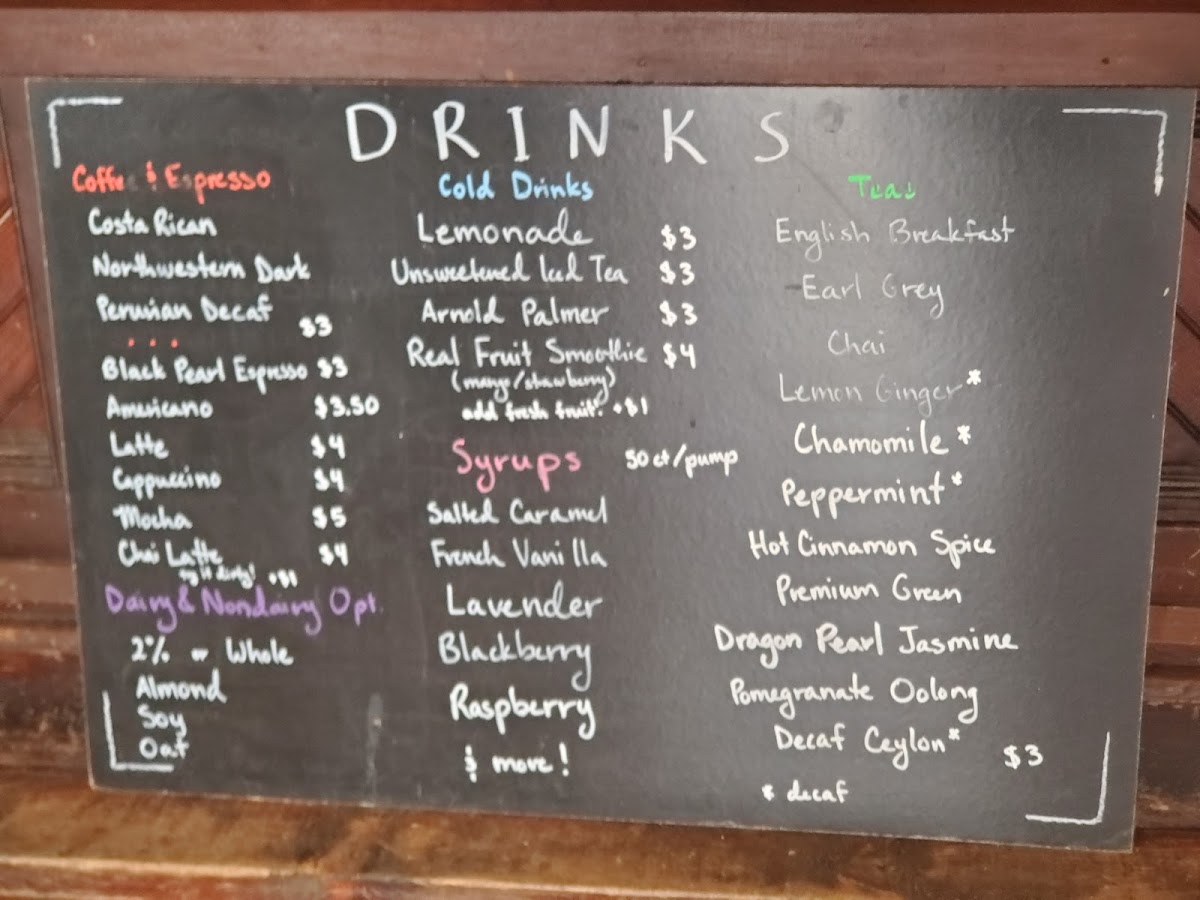 DRINKS
Coffee & Espresso
Costa Rican
Northwestern Dark
Peruvian Decaf
$3
...
Black Pearl Espresso $3
Americano $3.50
Latte $4
Cappuccino $4
Mocha $5
Chai Latte $4
try it dirty! +$1
Dairy & Nondairy Opt.
2% or Whole
Almond
Soy
Oat
Cold Drinks
Lemonade $3
Unsweetened Iced Tea $3
Arnold Palmer $3
Real Fruit Smoothie $4
(mango/strawberry)
add fresh fruit! +$1
Syrups 50 ct/pump
Salted Caramel
French Vanilla
Lavender
Blackberry
Raspberry
& more!
Teas
English Breakfast
Earl Grey
Chai
Lemon Ginger*
Chamomile*
Peppermint*
Hot Cinnamon Spice
Premium Green
Dragon Pearl Jasmine
Pomegranate Oolong
Decaf Ceylon*
$3
* decaf